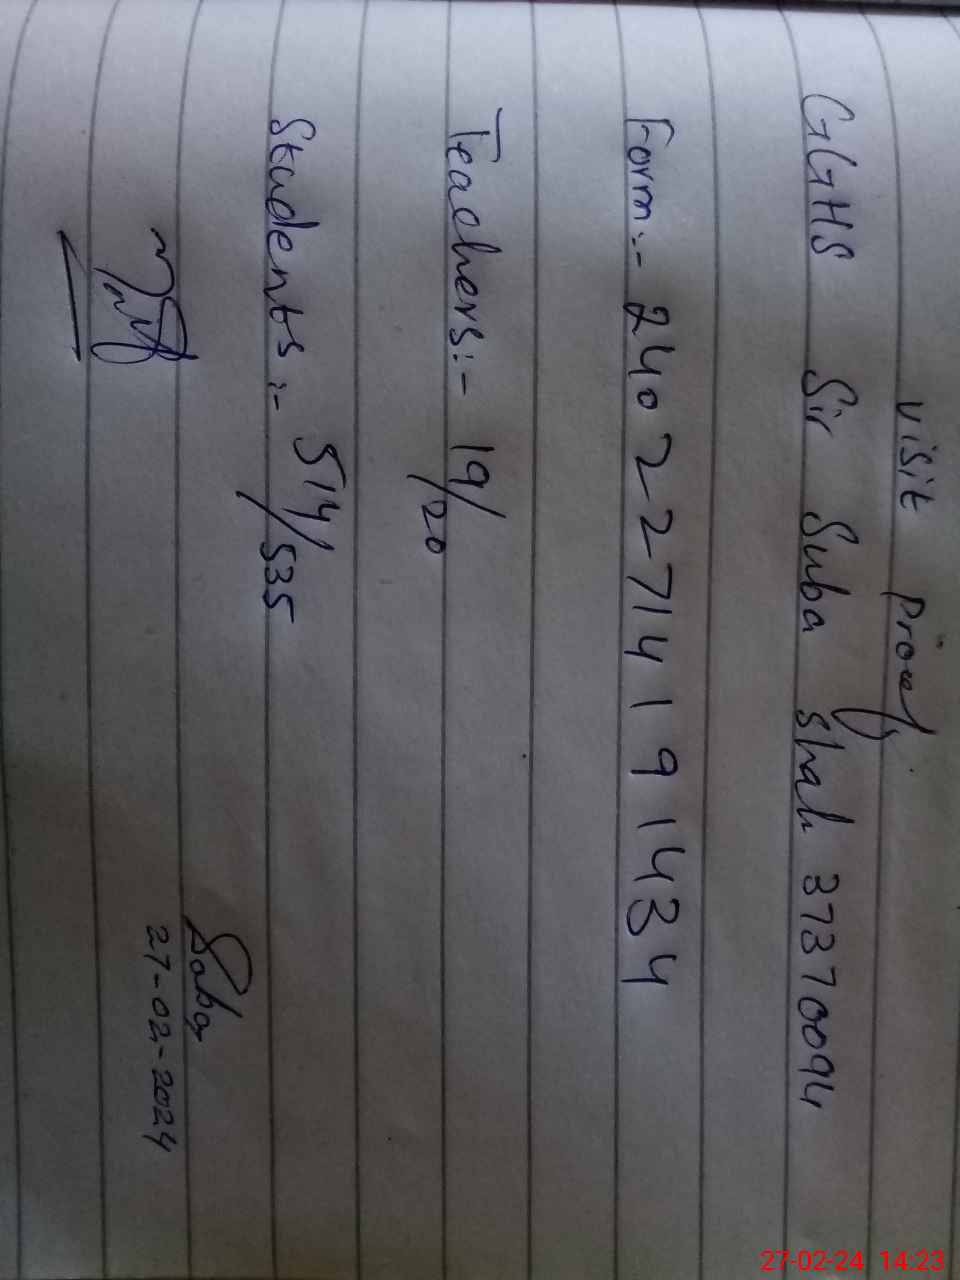 visit proof
GGHS Sir Suba Shah 37370094
Form:- 24022714191434
Teachers:- 19/20
Students:- 514/535
Saba
27-02-2024
27-02-24 14:23